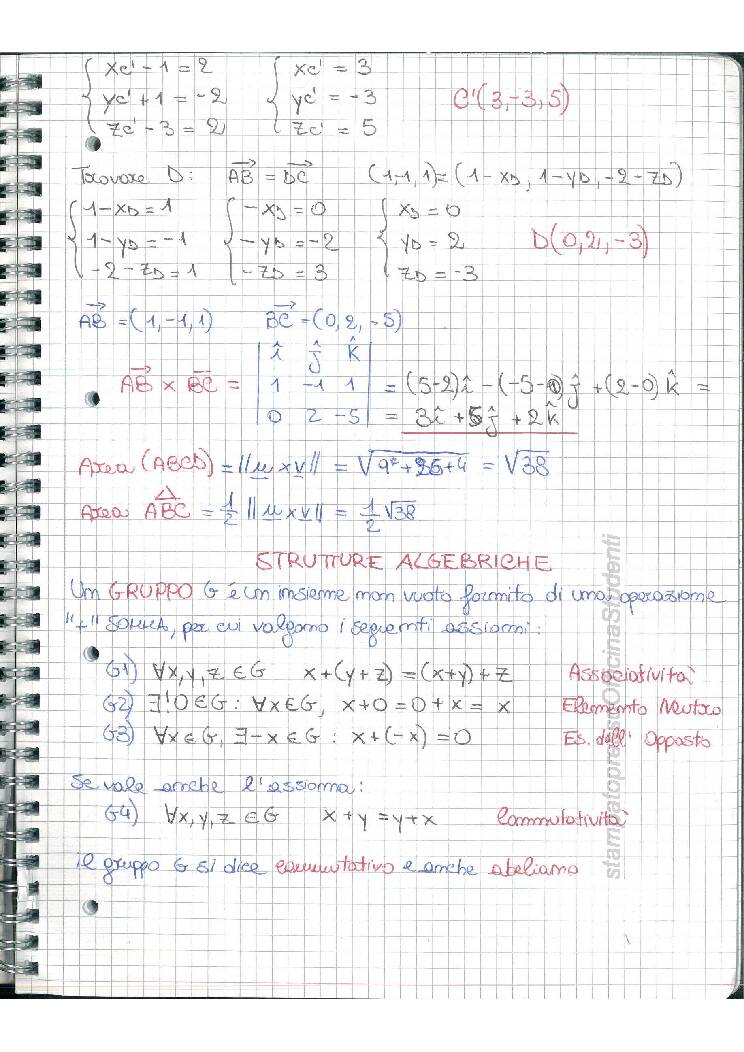 xc' - 1 = 2    xc' = 3
yc' + 1 = -2    yc' = -3    C'(3,-3,5)
zc' - 3 = 2    zc' = 5
Trovare D: AB = DC    (1,-1,1) = (1-xD, 1-yD, -2-zD)
1-xD = 1    -xD = 0    xD = 0
1-yD = -1    -yD = -2    yD = 2    D(0,2,-3)
-2-zD = 1    -zD = 3    zD = -3
AB = (1,-1,1)    BC = (0,2,-5)
î ĵ k̂
AB × BC = 1 -1 1 = (5-2)î - (-5-0)ĵ + (2-0)k̂ =
0 2 -5 = 3î + 5ĵ + 2k̂
Area (ABCD) = ||u × v|| = √9+25+4 = √38
Area ABC = 1/2 ||u × v|| = 1/2 √38
STRUTTURE ALGEBRICHE
Un GRUPPO G é un insieme non vuoto fornito di una operazione
"+" SOMMA, per cui valgono i seguenti assiomi:
G1) ∀x,y,z ∈ G    x+(y+z) = (x+y)+z    Associatività
G2) ∃!0 ∈ G : ∀x ∈ G, x+0 = 0+x = x    Elemento Neutro
G3) ∀x ∈ G, ∃-x ∈ G : x+(-x) = 0    Es. dell' Opposto
Se vale anche l'assioma:
G4) ∀x,y,z ∈ G    x+y = y+x    Commutatività
il gruppo G si dice commutativo e anche abeliano
stampatopressoOfficinaStudenti